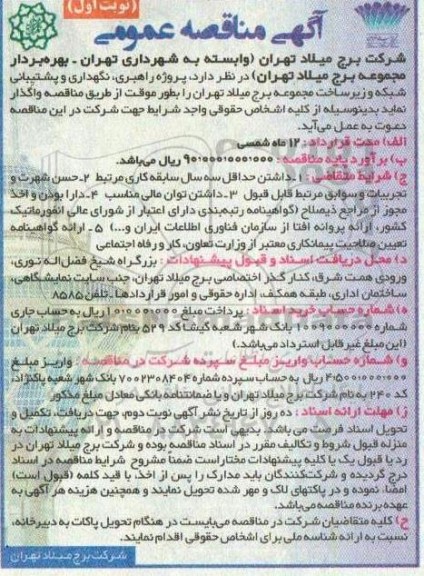 (نوبت اول)
آگهی مناقصه عمومی
شرکت برج میلاد تهران (وابسته به شهرداری تهران - بهره‌بردار
مجموعه برج میلاد تهران) در نظر دارد، پروژه راهبری، نگهداری و پشتیبانی
شبکه و زیرساخت مجموعه برج میلاد تهران را بطور موقت از طریق مناقصه واگذار
نماید بدینوسیله از کلیه اشخاص حقوقی واجد شرایط جهت شرکت در این مناقصه
دعوت به عمل می‌آید.
الف) مدت قرارداد: ۱۲ ماه شمسی
ب) برآورد پایه مناقصه: ۹۰/۰۰۰/۰۰۰/۰۰۰ ریال می‌باشد.
ج) شرایط متقاضی: ۱.داشتن حداقل سه سال سابقه کاری مرتبط ۲-حسن شهرت و
تجربیات و سوابق مرتبط قابل قبول ۳-داشتن توان مالی مناسب ۴-دارا بودن و اخذ
مجوز از مراجع ذیصلاح (گواهینامه رتبه‌بندی دارای اعتبار از شورای عالی انفورماتیک
کشور، ارائه پروانه افتا از سازمان فناوری اطلاعات ایران و...) ۵-ارائه گواهینامه
تعیین صلاحیت پیمانکاری معتبر از وزارت تعاون، کار و رفاه اجتماعی
د) محل دریافت اسناد و قبول پیشنهادات: بزرگراه شیخ فضل‌اله نوری،
ورودی همت شرق، کنار گذر اختصاصی برج میلاد تهران، جنب سایت نمایشگاهی،
ساختمان اداری، طبقه همکف، اداره حقوقی و امور قراردادها. تلفن ۸۵۸۵
ه) شماره حساب خرید اسناد: پرداخت مبلغ ۱/۰۰۰/۰۰۰ ریال به حساب جاری
شماره ۱۰۰۹۰۰۰۰۰۰ بانک شهر شعبه گیشا کد ۵۲۹ بنام شرکت برج میلاد تهران
(این مبلغ غیر قابل استرداد می‌باشد.)
و) شماره حساب واریز مبلغ سپرده شرکت در مناقصه: واریز مبلغ
۴/۵۰۰/۰۰۰/۰۰۰ ریال به حساب سپرده شماره ۷۰۰۲۳۰۸۴۰۴ بانک شهر شعبه پاکنژاد،
کد ۲۴۰ به نام شرکت برج میلاد تهران و یا ضمانتنامه بانکی معادل مبلغ مذکور
ز) مهلت ارائه اسناد: ده روز از تاریخ نشر آگهی نوبت دوم، جهت دریافت، تکمیل و
تحویل اسناد فرصت می باشد. بدیهی است شرکت در مناقصه و ارائه پیشنهادات به
منزله قبول شروط و تکالیف مقرر در اسناد مناقصه بوده و شرکت برج میلاد تهران در
رد یا قبول یک یا کلیه پیشنهادات مختار است ضمناً مشروح شرایط مناقصه در اسناد
درج گردیده و شرکت‌کنندگان باید مدارک را پس از اخذ، با قید کلمه (قبول است)
امضا، نموده و در پاکتهای لاک و مهر شده تحویل نمایند و همچنین هزینه هر آگهی به
عهده برنده مناقصه می‌باشد.
ح) کلیه متقاضیان شرکت در مناقصه می‌بایست در هنگام تحویل پاکات به دبیرخانه،
نسبت به ارائه شناسه ملی برای اشخاص حقوقی اقدام نمایند.
شرکت برج میلاد تهران